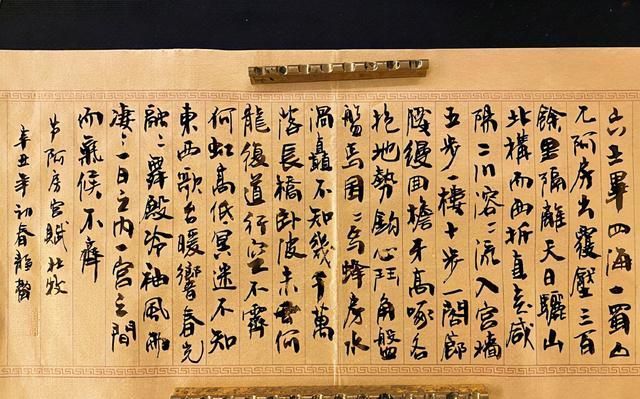 六王畢四海一蜀山
兀阿房出覆壓三百
餘里隔離天日驪山
北構而西折直走咸
陽二川溶〻流入宮墻
五步一樓十步一閣廊
腰縵回檐牙高啄各
抱地勢鈎心鬥角盤
盤焉囷〻焉蜂房水
渦矗不知幾千萬
落長橋卧波未雲何
龍復道行空不霽
何虹高低冥迷不知
東西歌台暖響春光
融〻舞殿冷袖風雨
凄〻一日之内一宮之間
而氣候不齊
节阿房宫賦杜牧
辛丑年初春